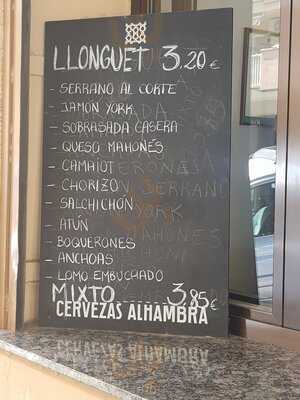 LLONGUET 3,20€
- SERRANO AL CORTE
- JAMÓN YORK
- SOBRASADA CASERA
- QUESO MAHONÉS
- CAMAIOT
- CHORIZÓN
- SALCHICHÓN
- ATÚN
- BOQUERONES
- ANCHOAS
- LOMO EMBUCHADO
MIXTO 3,85€
CERVEZAS ALHAMBRA